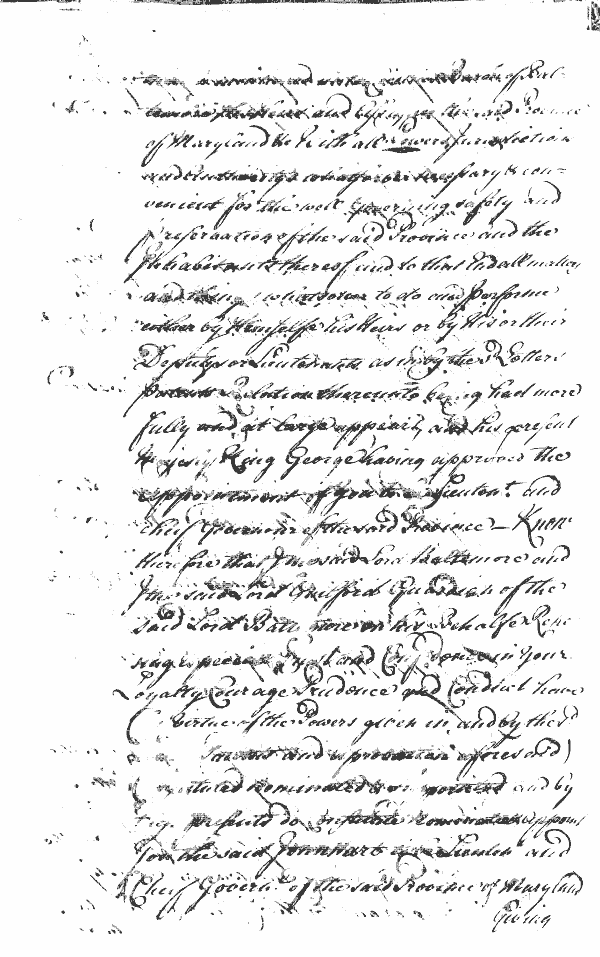 of Balt
temore his Heirs and Assigns the said Province
of Maryland &c With all Powers Jurisdiction
and necessary & con=
venient for the well Governing safety and
preservation of the said Province and the
Inhabitants thereof and to that End all matters
and things whatsoever to do and performe
either by Himselfe his Heirs or by his or their
Deputys or Lieutenants as in by the Letters
Patents Relation thereunto being had more
fully and at large appears, and his present
Majesty King George having approved the
appointment of you to Lieutent. and
Chief Governour of the said Province — Know
therefore that I the said Lord Baltemore and
I the said Lord Guilford Guardian of the
said Lord Balt now on his Behalfe Repo
sing especial Trust and Confidence in Your
Loyalty Courage Prudence and Conduct have
( virtue of the Powers given in and by the sd
Patent and aforesaid)
nominated and by
presents do nominate appoint
You the said Hart Lieutent and
Chief Govern.r of the said Province of Maryland
Giving